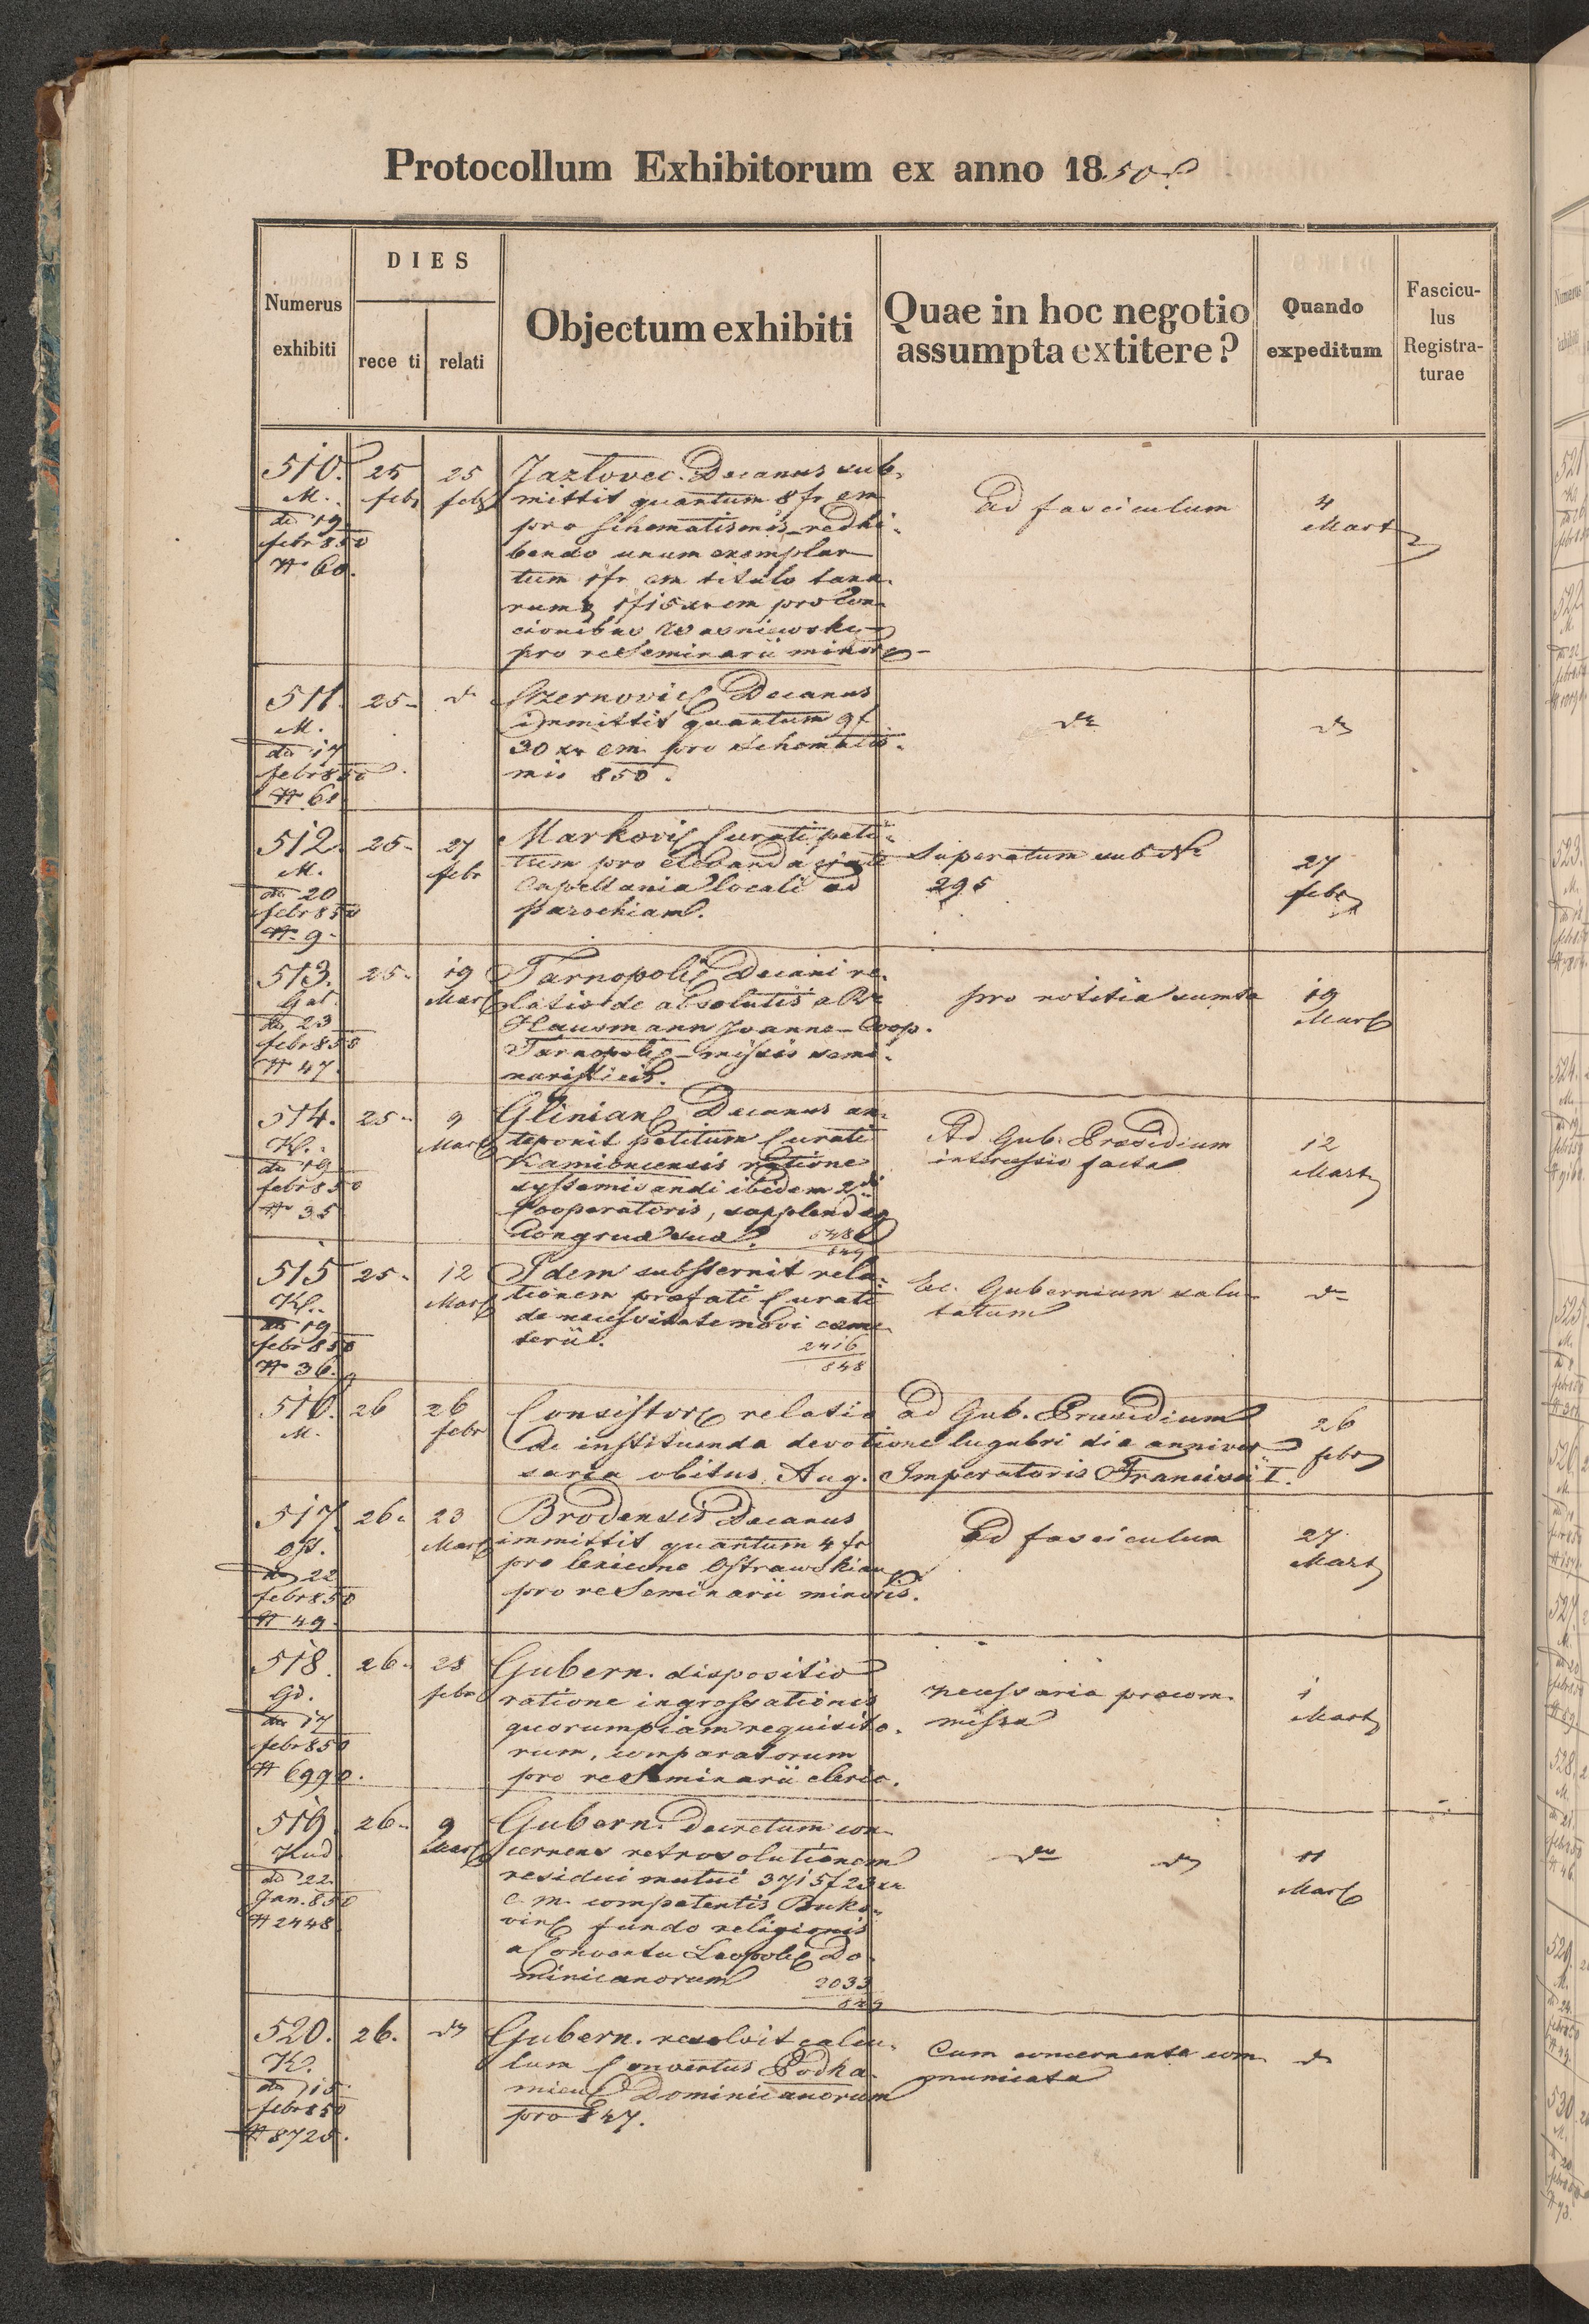 Protocollum Exhibitorum ex anno 1850
Numerus exhibiti
DIES
rece ti
relati
Objectum exhibiti
Quae in hoc negotio
assumpta extitere?
Quando
expeditum
Fascicu-
lus
Registra-
turae
510.
M.
do 19
febr 850
N 60.
25
febr
25
febr
Jazlovec. Decanus sub-
mittit quantum 8 fr cm
pro schematismis redhi-
bendo unum exemplar
tum 1 fr cm titulo
1 f 15 xr cm pro Con-
cionibus Wasniewski
pro re Seminarii minor
ad fasciculum
4
Mart
511.
M.
do 17
febr 850
N 61
25-
do
Czernovic Decanus
immittit quantum 9 f
30 xr cm pro schematis-
mis 850.
do
do
512.
M.
do 20
febr 850
N 9-
25-
27
febr
Markovic Curati peti-
tum pro elevanda
Capellania locali ad
parochiam.
Superatum sub No
295
27
febr
513.
Gal.
do 23
febr 850
N 47.
25-
19
Mart
Tarnopoli Decani re-
latio de absolutis a Ro
Hausmann Joanne Coop.
Tarnopoli missis semi-
naristicis.
pro notitia sumta
19
Mart
514.
Kl.
do 19
febr 850
N 35
25-
9
Mart
Glinian Decanus an-
teponit petitum Curati
Kamionensis ratione
systemisandi ibidem 2di
Cooperatoris, supplend
congrua sua.
848
849
Ad Gub. Praesidium
intercessio facta
12
Mart
515
Kl.
do 19
febr 850
N 36.
25-
12
Mart
Idem substernit rela-
tionem praefati Curati
de necessitate novi coeme
terii.
2416
848
Ec. Gubernium salu-
tatum
do
516.
M.
26
26
febr
Consistor relatio ad Gub. Praesidium
de instituenda devotione lugubri die anniver
saria obitus Aug. Imperatoris Francisci I.
26
febr
517.
Ost.
do 22
febr 850
N 49.
26-
23
Mart
Brodensis Decanus
immittit quantum 4 fr
pro lexicone Ostrawskian
pro re Seminarii minoris.
ad fasciculum
27
Mart
518.
Gd.
do 17
febr 850
N 6990.
26-
28
febr
Gubern. dispositio
ratione ingrossationis
quorumpiam requisito-
rum, comparatorum
pro re Seminarii cleric.
necessaria praeom-
missa
1
Mart
519.
Kud
do 22
Jan. 850
N 2448
26-
9
Mart
Gubern. Decretum con-
cernens retrosolutionem
residui mutui 3715 f 23 xr
c. m. competentis Buko-
vin fundo religionis
a Conventu Leopoli Do-
minicanorum
2033
849
do do
11
Mart
520.
K.
do 15
febr 850
N 8725.
26.
do
Gubern. resolvit calcu-
lum Conventus Podka-
mien Dominicanorum
pro 847.
Cum concernente com-
municata
do